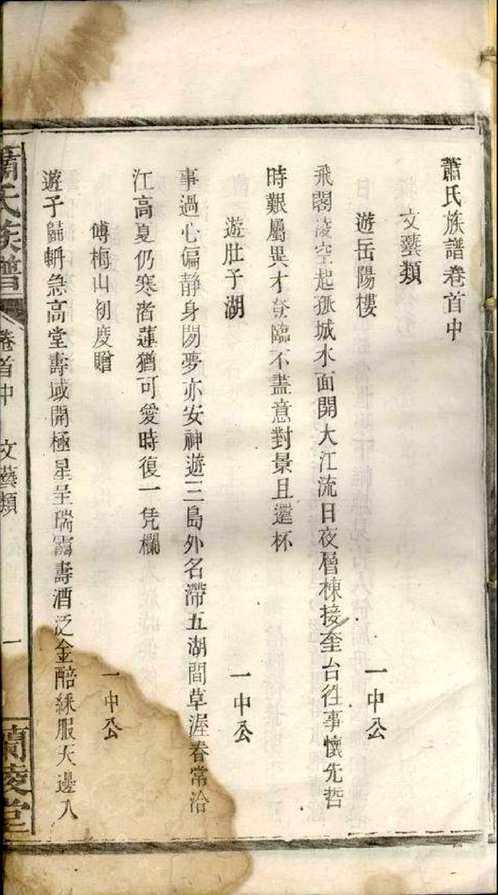 蕭氏族譜卷首中
文藝類
遊岳陽樓
一中公
飛閣凌空起孤城水面開大江流日夜層棟接奎台往事懷先哲
時艱屬異才登臨不盡意對景且還杯
遊肚子湖
一中公
事過心偏静身閒夢亦安神遊三島外名滯五湖間草渥春常沿
江高夏仍寒渚蓮猶可愛時復一凭欄
傅梅山初度贈
一中公
遊子歸輈急高堂壽域開極星呈瑞靄壽酒泛金醅綵服天邊入
蕭氏族譜
卷首中
文藝類
一
蘭陵堂